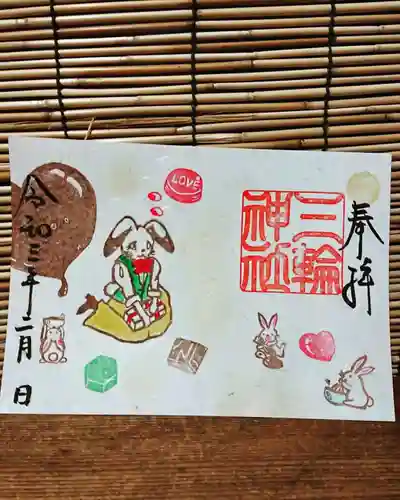 奉拝
三輪
神社
LOVE
令和三年二月 日